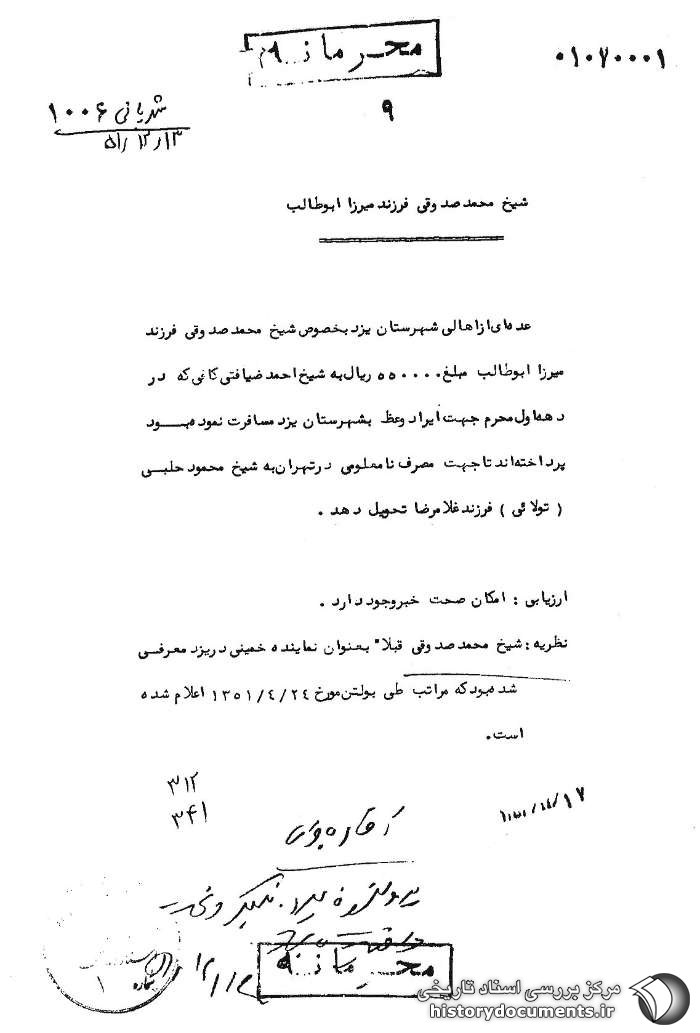 محرمانه
۰۱۰۷۰۰۰۱
۹
شهربانی ۱۰۰۶
۵۱/۱۲/۱۳
شیخ محمد صدوقی فرزند میرزا ابوطالب
عده‌ای از اهالی شهرستان یزد بخصوص شیخ محمد صدوقی فرزند
میرزا ابوطالب مبلغ ۵۵۰۰۰۰ ریال به شیخ احمد ضیافتی کافی که در
دهه اول محرم جهت ایراد وعظ بشهرستان یزد مسافرت نموده بود
پرداخته‌اند تا جهت مصرف نامعلومی در تهران به شیخ محمود حلبی
( تولائی ) فرزند غلامرضا تحویل دهد .
ارزیابی : امکان صحت خبر وجود دارد .
نظریه : شیخ محمد صدوقی قبلا" بعنوان نماینده خمینی در یزد معرفی
شده بود که مراتب طی بولتن مورخ ۱۳۵۱/۴/۲۴ اعلام شده
است .
۳۱۲
۳۴۱
محرمانه
مرکز بررسی اسناد تاریخی
historydocuments.ir